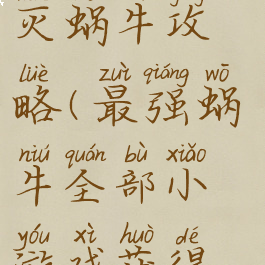 灭蜗牛攻
lüè zuì qiáng wō
略(最强蜗
niú quán bù xiǎo
牛全部小
yóu xì huò dé
游戏获得